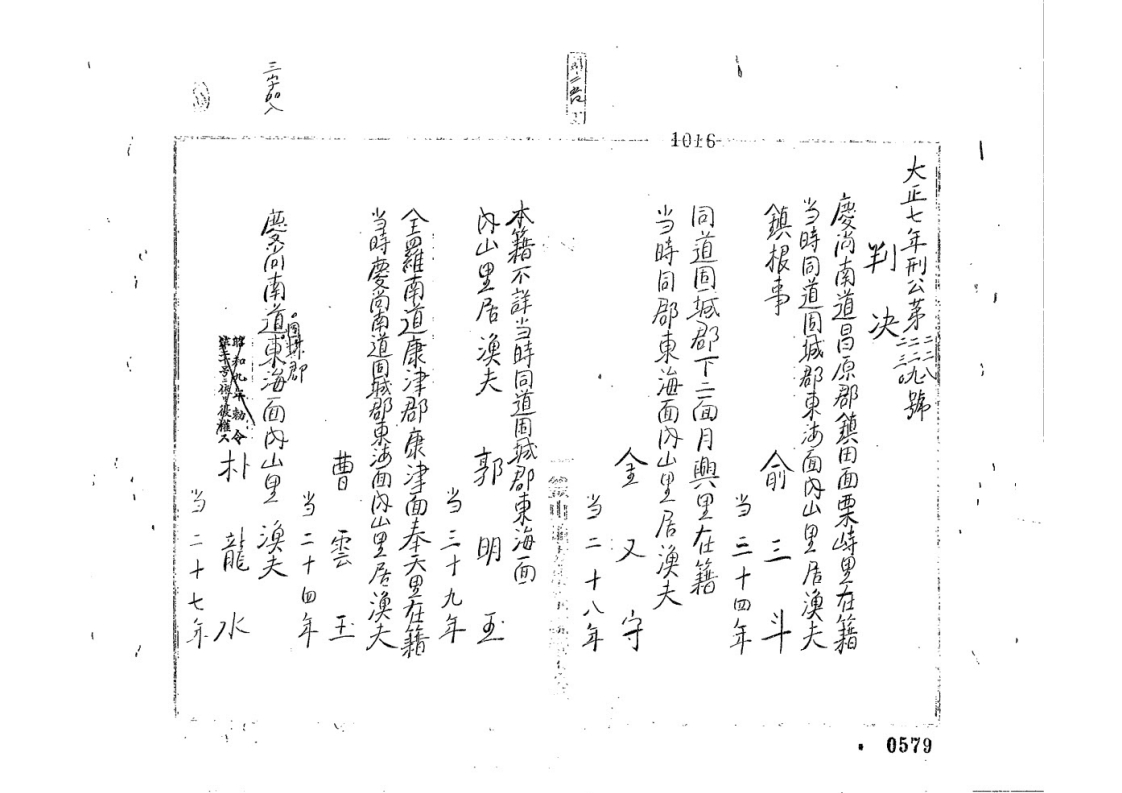 1016
大正七年刑公第二二八二二九二三〇號
判決
慶尚南道昌原郡鎮田面栗峙里在籍
当時同道固城郡東海面内山里居漁夫
鎮根事 俞三斗
当三十四年
同道固城郡下二面月興里在籍
当時同郡東海面内山里居漁夫
金又守
当二十八年
本籍不詳当時同道固城郡東海面
内山里居漁夫 郭明玉
当三十九年
全羅南道康津郡康津面奉天里在籍
当時慶尚南道固城郡東海面内山里居漁夫
曹雲玉
当二十四年
固城郡
慶尚南道東海面内山里 漁夫
昭和九年勅令
朴龍水
当二十七年
0579